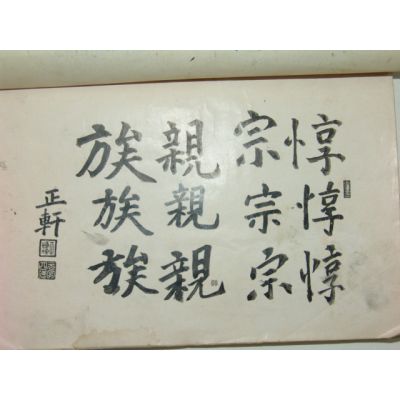 惇惇惇
宗宗宗
親親親
族族族
正軒